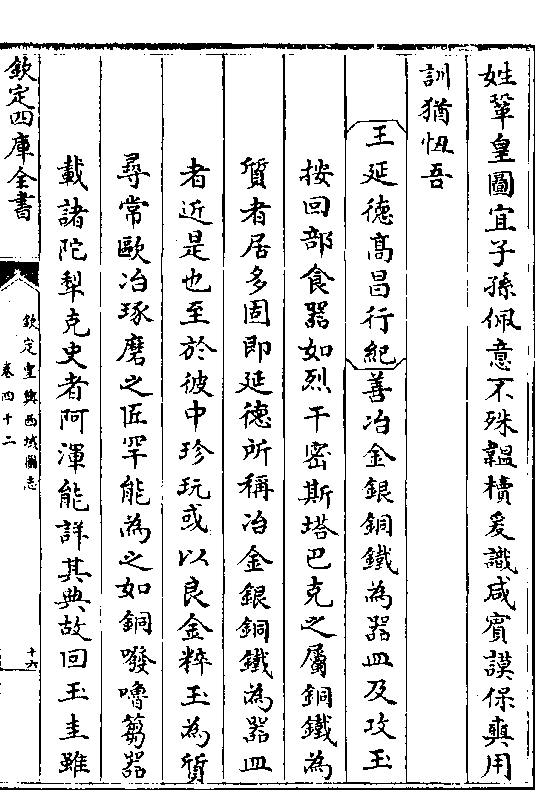 姓鞏皇圖宜子孫佩意不殊韞櫝爰識咸賓謨保真用
訓猶忸吾
王延德高昌行紀善冶金銀銅鐵為器皿及攻玉
按回部食器如烈干密斯塔巴克之屬銅鐵為
質者居多固即延德所稱冶金銀銅鐵為器皿
者近是也至於彼中珍玩或以良金粹玉為質
尋常歐冶琢磨之匠罕能為之如銅噯嚕蒭器
載諸陀犁克史者阿渾能詳其典故回玉圭雖
欽定四庫全書
欽定皇輿西域圖志
卷四十二
十六